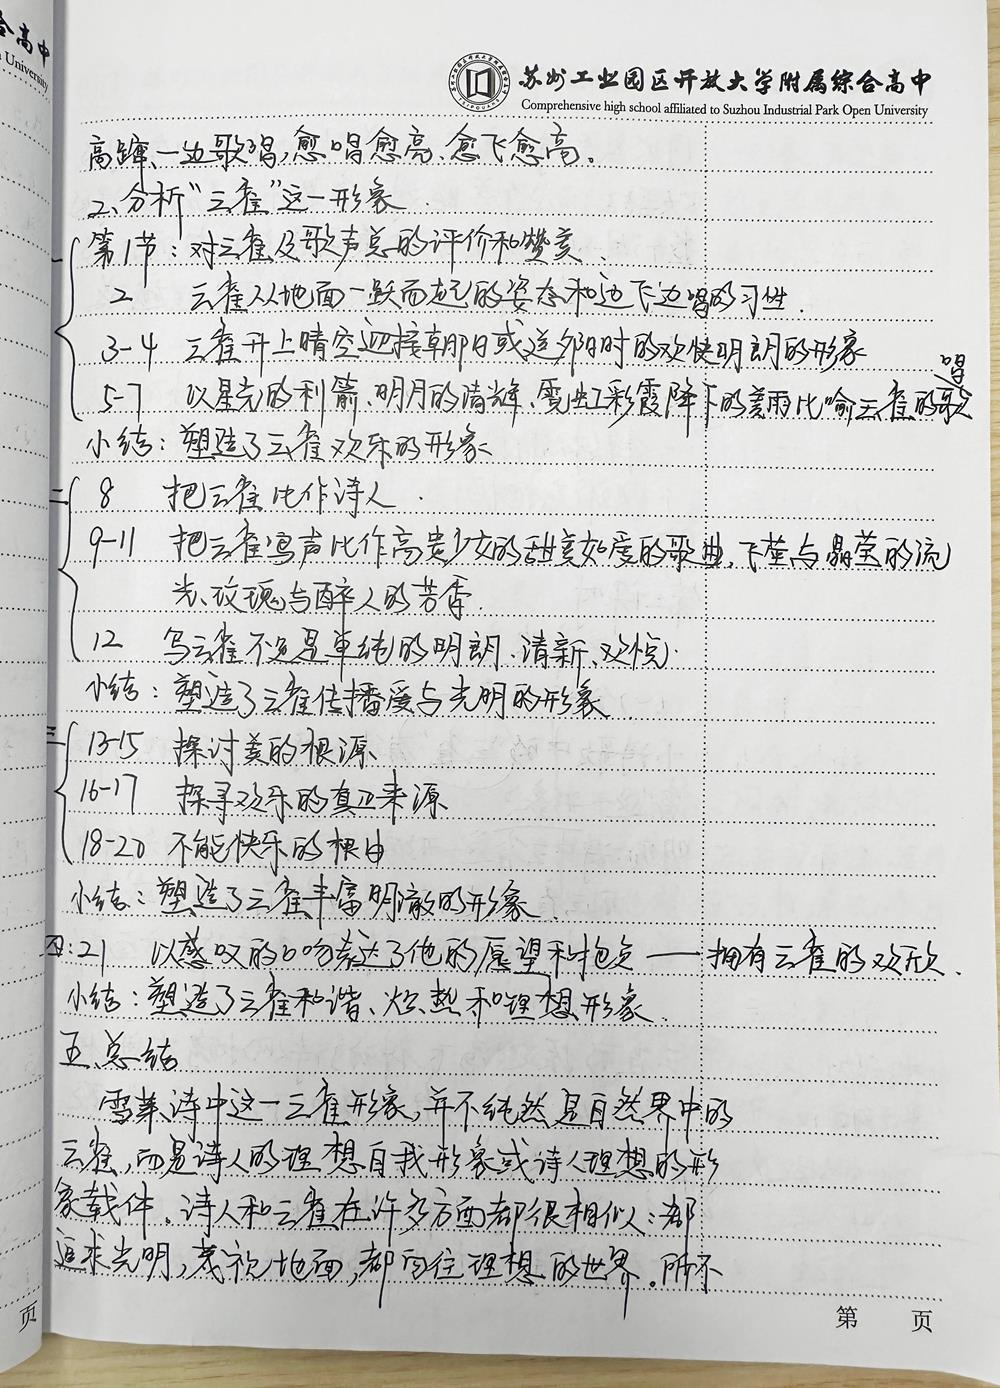 合高中
n University
苏州工业园区开放大学附属综合高中
Comprehensive high school affiliated to Suzhou Industrial Park Open University
高蹿、一边歌唱,愈唱愈高、愈飞愈高。
2、分析“云雀”这一形象.
一 第1节:对云雀及歌声总的评价和赞美.
2 云雀从地面一跃而起的姿态和边飞边唱的习性.
3-4 云雀升上晴空迎接朝日或送夕阳时的欢快明朗的形象
5-7 以星光的利箭、明月的清辉、霓虹彩霞降下的美雨比喻云雀的歌唱
小结:塑造了云雀欢乐的形象
二 8 把云雀比作诗人.
9-11 把云雀鸣声比作高贵少女的甜美如爱的歌曲、飞萤与晶莹的流
光、玫瑰与醉人的芳香.
12 写云雀不只是单纯的明朗、清新、欢悦.
小结:塑造了云雀传播爱与光明的形象
三 13-15 探讨美的根源
16-17 探寻欢乐的真正来源
18-20 不能快乐的根由
小结:塑造了云雀丰富明澈的形象.
四:21 以感叹的口吻表达了他的愿望和抱负——拥有云雀的欢欣.
小结:塑造了云雀和谐、炽热和理想形象.
五、总结
雪莱诗中这一云雀形象,并不纯然是自然界中的
云雀,而是诗人的理想自我形象或诗人理想的形
象载体。诗人和云雀在许多方面都很相似:都
追求光明,蔑视地面,都向往理想的世界。所不
第 页
页